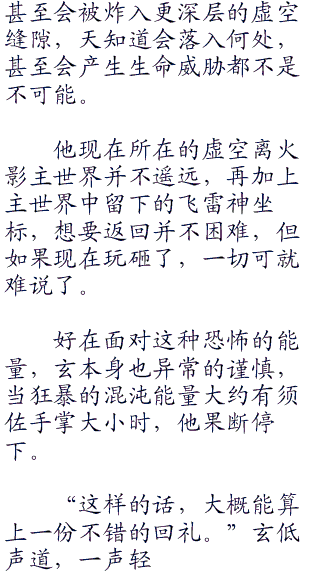 甚至会被炸入更深层的虚空
缝隙，天知道会落入何处，
甚至会产生生命威胁都不是
不可能。
他现在所在的虚空离火
影主世界并不遥远，再加上
主世界中留下的飞雷神坐
标，想要返回并不困难，但
如果现在玩砸了，一切可就
难说了。
好在面对这种恐怖的能
量，玄本身也异常的谨慎，
当狂暴的混沌能量大约有须
佐手掌大小时，他果断停
下。
“这样的话，大概能算
上一份不错的回礼。”玄低
声道，一声轻